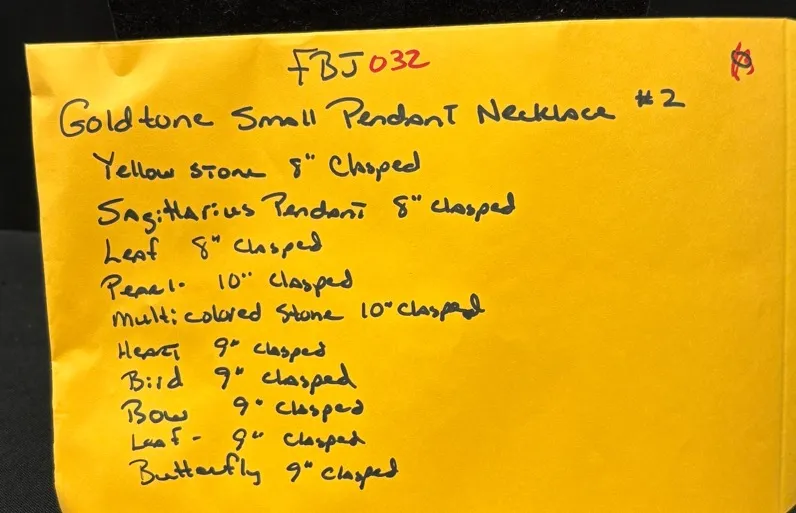 FBJ 032
Goldtone Small Pendant Necklace #2
Yellow stone 8" Clasped
Sagittarius Pendant 8" clasped
Leaf 8" clasped
Pearl- 10" clasped
Multicolored Stone 10" clasped
Heart 9" clasped
Bird 9" clasped
Bow 9" clasped
Leaf- 9" clasped
Butterfly 9" clasped